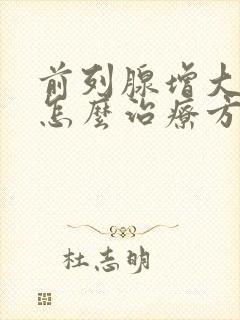 前列腺增大
怎麼治療方
杜志明